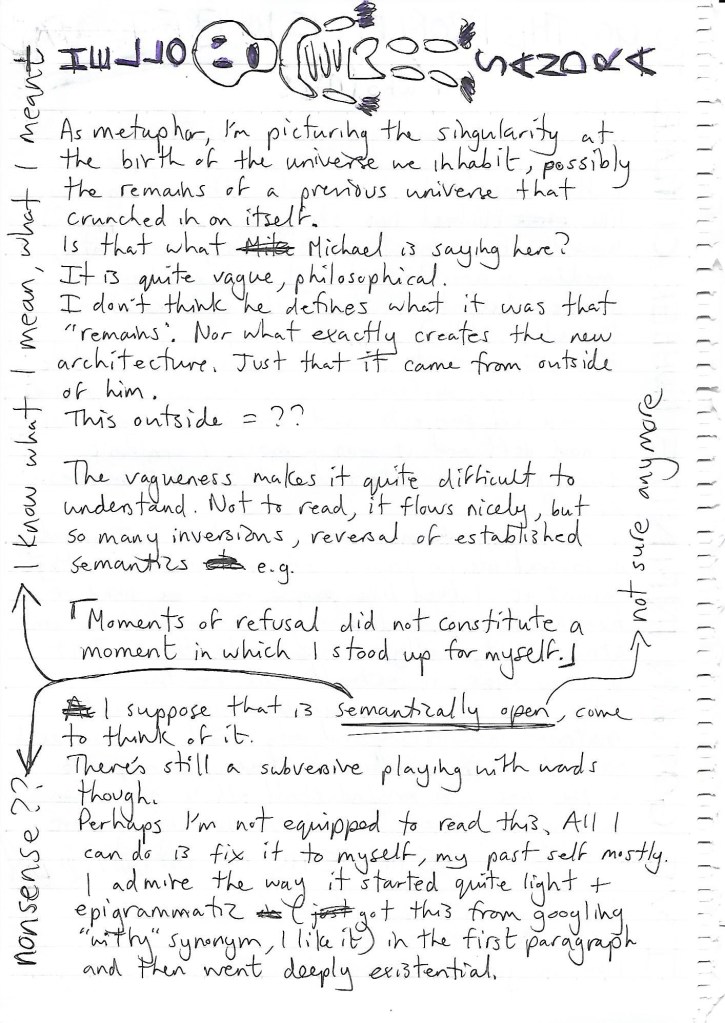 HELLO SANDRA
As metaphor, I'm picturing the singularity at
the birth of the universe we inhabit, possibly
the remains of a previous universe that
crunched in on itself.
Is that what Mike Michael is saying here?
It is quite vague, philosophical.
I don't think he defines what it was that
"remains". Nor what exactly creates the new
architecture. Just that it came from outside
of him.
This outside = ??
The vagueness makes it quite difficult to
understand. Not to read, it flows nicely, but
so many inversions, reversal of established
semantics e.g.
「Moments of refusal did not constitute a
moment in which I stood up for myself.」
I suppose that is semantically open, come
to think of it.
There's still a subversive playing with words
though.
Perhaps I'm not equipped to read this. All I
can do is fix it to myself, my past self mostly.
I admire the way it started quite light +
epigrammatic (just got this from googling
"withy" synonym, I like it) in the first paragraph
and then went deeply existential.
I know what I mean, what I meant
nonsense??
not sure anymore